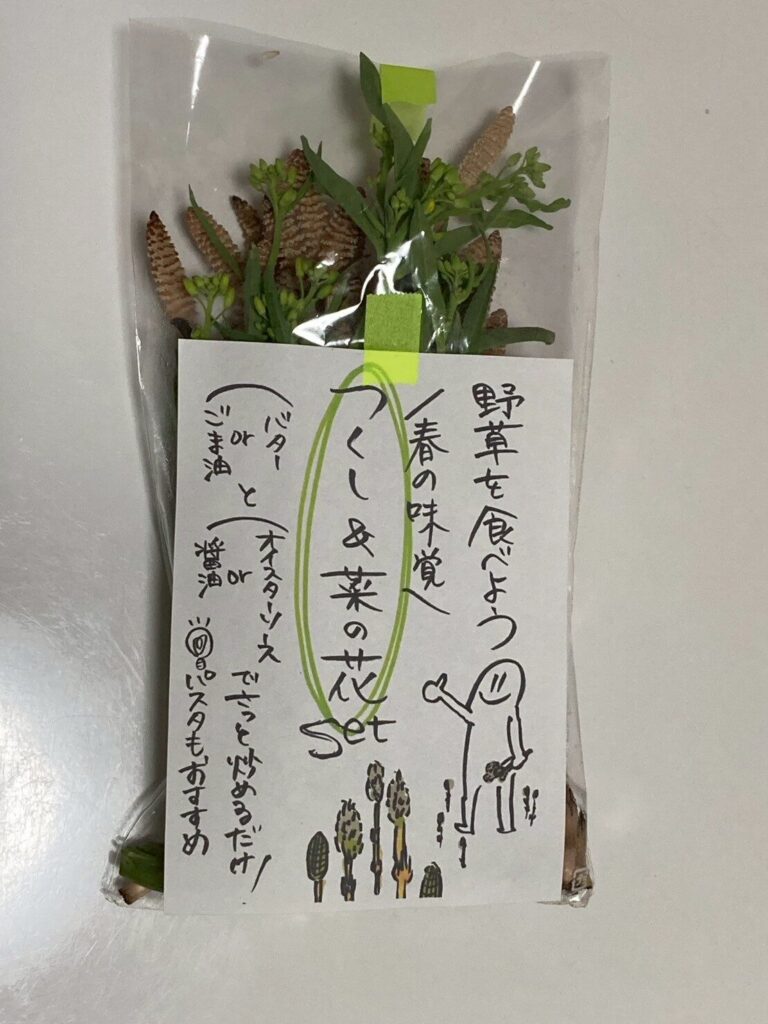 野草を食べよう
\春の味覚/
つくし&菜の花
set
(バター or ごま油)と
(オイスターソース or 醤油)
でさっと炒めるだけ!
パスタもおすすめ